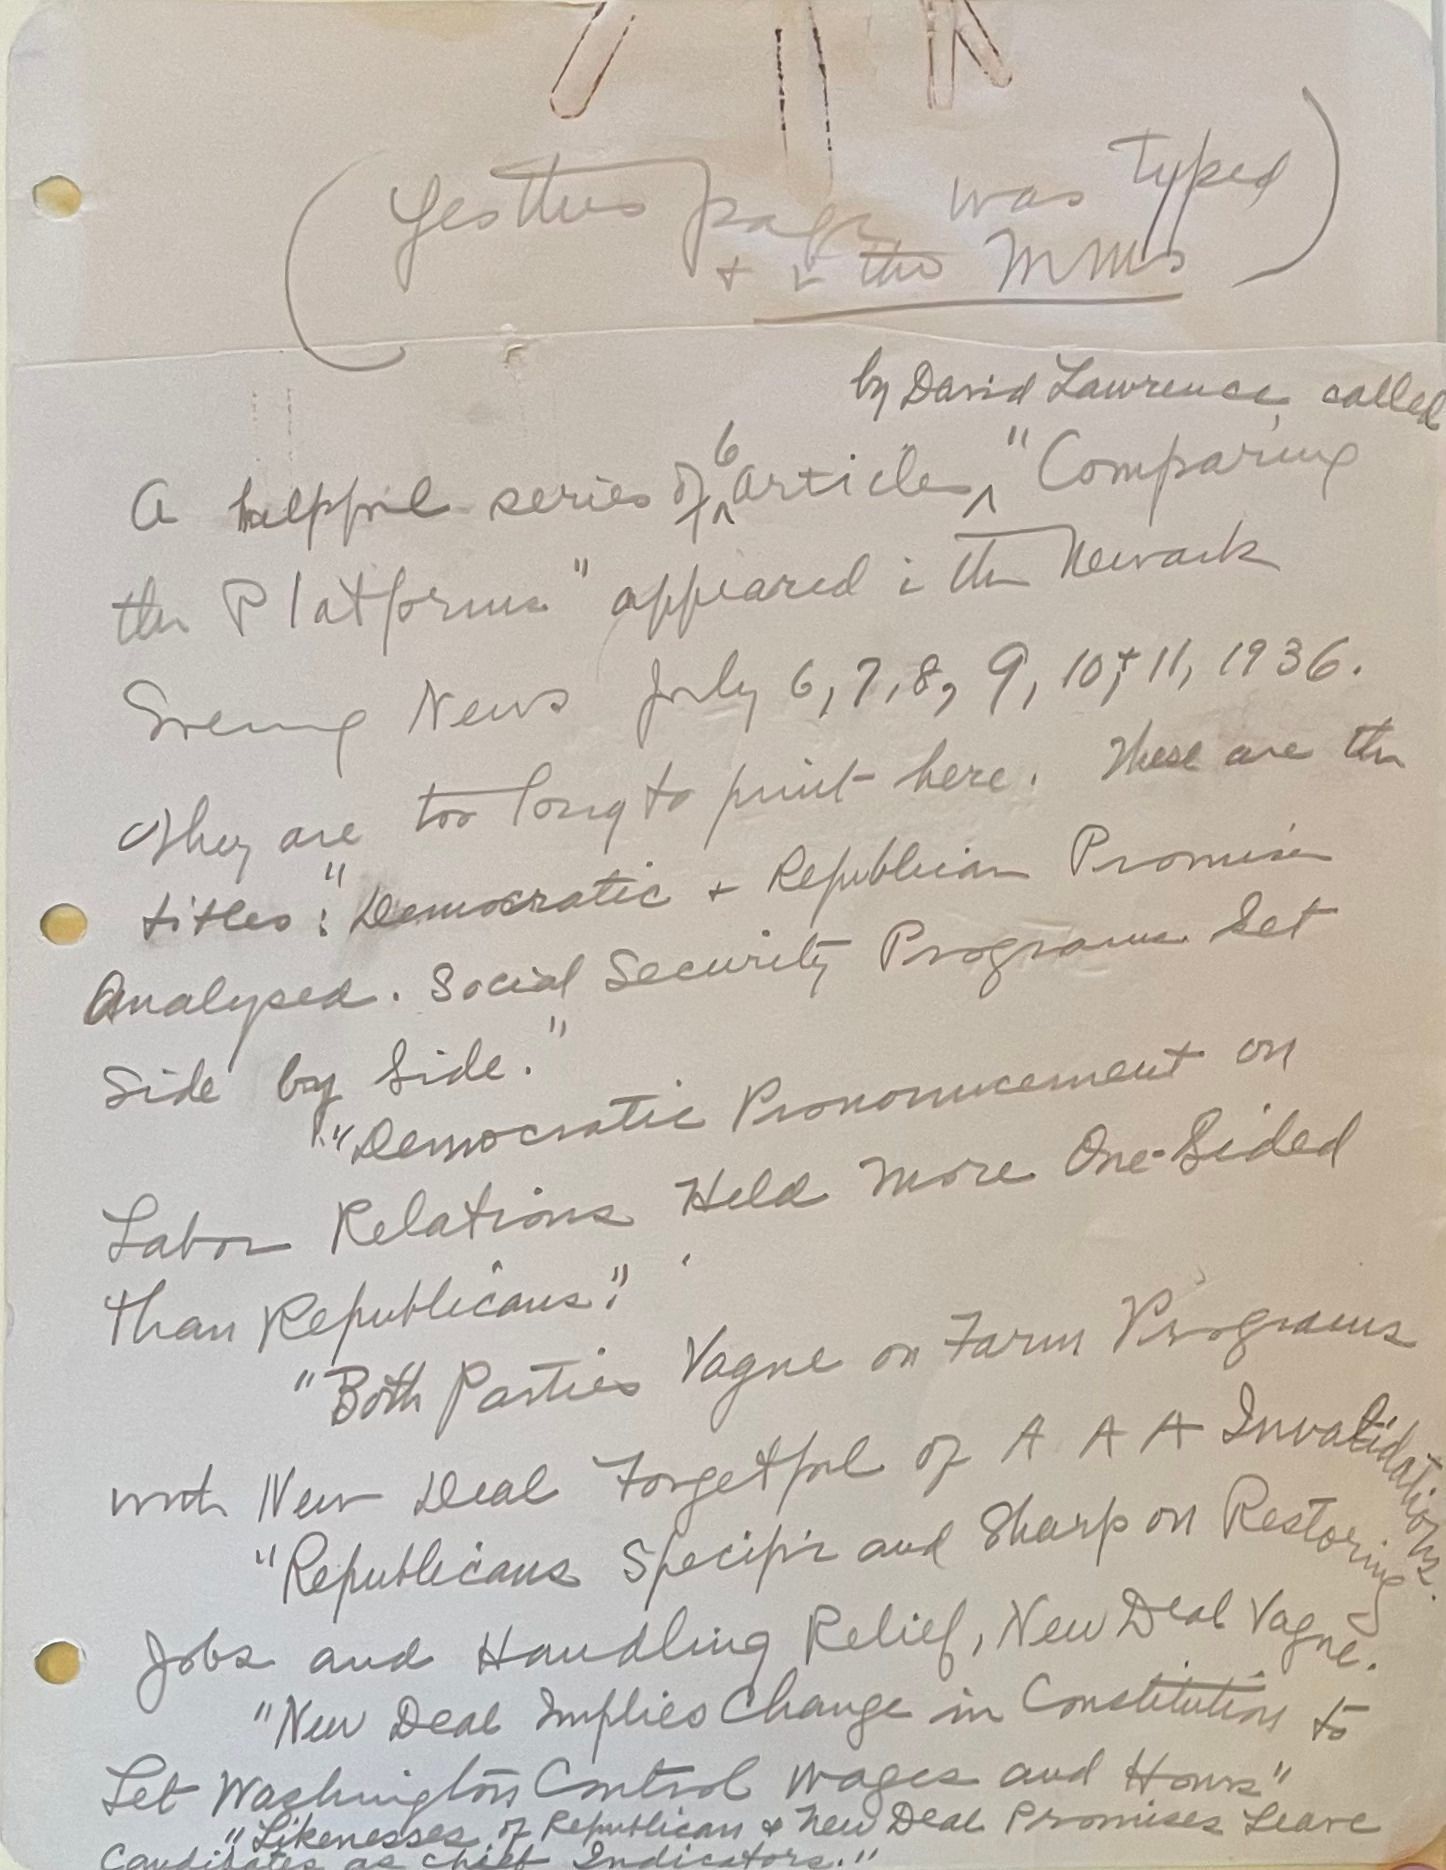 (Yes this page was typed
+ in the MMS)
by David Lawrence, called
A helpful series of 6 articles, "Comparing
the Platforms" appeared in the Newark
Evening News July 6, 7, 8, 9, 10, + 11, 1936.
They are too long to print here. These are the
titles: "Democratic + Republican Promises
Analysed. Social Security Programs Set
Side by Side."
"Democratic Pronouncement on
Labor Relations Held More One-Sided
than Republicans."
"Both Parties Vague on Farm Programs
with New Deal Forgetful of A A A Invalidations.
"Republicans Specific and Sharp on Restoring
Jobs and Handling Relief, New Deal Vague.
"New Deal Implies Change in Constitution to
Let Washington Control Wages and Hours"
"Likenesses of Republican + New Deal Promises Leave
Candidates as chief Indicators."